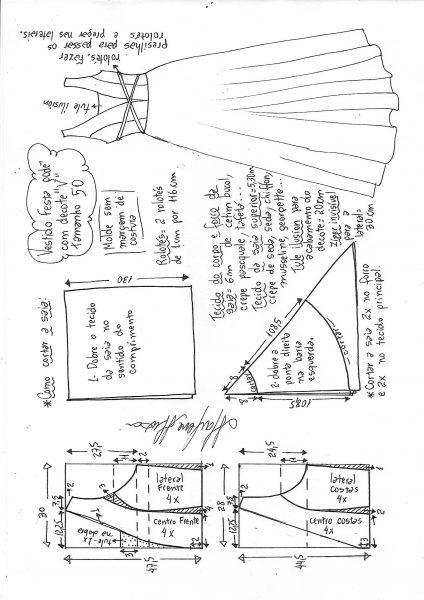 Vestido festa "Ddê"
com decote "V"
tamanho 50
Molde sem
margem de
costura
Rolotês = 2 rolotês
de 1cm por 116cm
presilhas para passar os
rolotês. Fazer
rolotês e pregar nas laterais.
tule ilusion
Tecido do corpo e forro da
saia = 6m de cetim bucol,
crepe pasquale, tafetá...
Tecido da saia superior = 5,30m
crepe de seda, seda, chiffon,
musseline, georgette...
Tule ilusion para
acabamento do
decote = 200cm
Zíper invisível
para a
lateral =
30cm
*Como cortar a saia:
130
1- Dobre o tecido
da saia no
sentido do
comprimento
2- dobre a
ponta direita
na barra
esquerda.
108,5
108,5
8
8
cortar
cortar
*Cortar a saia 2x no forro
e 2x no tecido principal
Marlene Mukai
27,5
14
2
30
7,5
12,25
2
3
1
1
2
3
3
47,5
lateral
frente
4x
centro frente
4x
tule-1x
na dobra
24,5
14
28
7,5
12,25
2
1
2
3
44,5
lateral
costas
4x
centro costas
4x